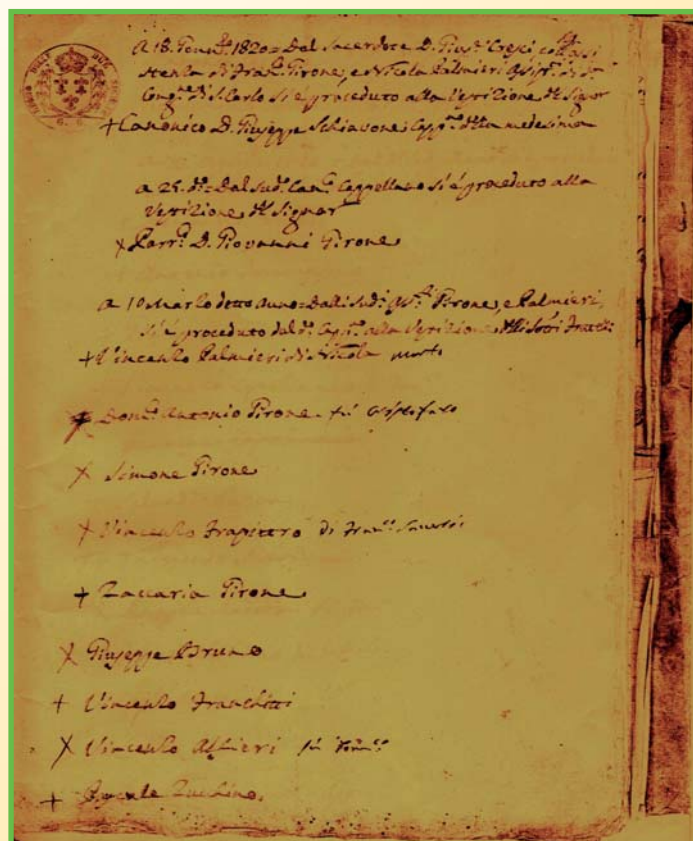 A 18. Genn.º 1820 = Dal Sacerdote D. Gius.e Crespi coll'assi
stenza di Fran.co Girone, e Nicola Palmieri
Cong.ne di S. Carlo si è proceduto alla Vestizione del Signor
+ Canonico D. Giuseppe Schiavone Capp.no della medesima
a 25. d.º = Dal Sud.º Can.co Cappellano si è proceduto alla
Vestizione del Signor
× Parr.º D. Giovanni Girone
A 10 Marzo detto anno = Dalli Sud.i Girone, e Palmieri,
si è proceduto dal d.º Capp.no alla Vestizione delli sotti Fratelli
+ Vincenzo Palmieri di Nicola morto
+ Dom.co Antonio Girone fù Cristofaro
× Simone Girone
× Vincenzo Frapittro di Fran.co Saverio
+ Zaccaria Girone
× Giuseppe Bruno
+ Vincenzo Franchitti
× Vincenzo Alfieri fù
+ Pasquale Zucchino.